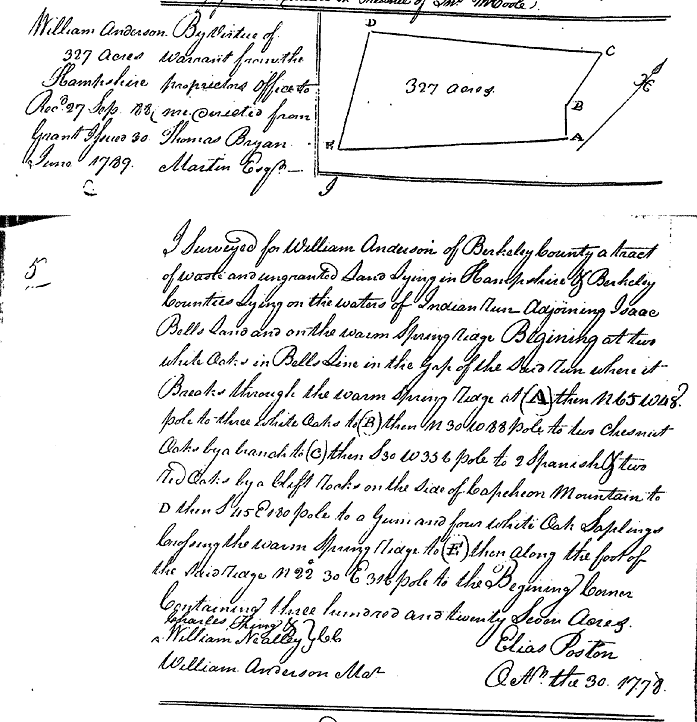 William Anderson By Virtue of
327 Acres warrant from the
Hampshire proprietors Office to
Recd 27 Sep. 88 me directed from
Grant Issued 30 Thomas Bryan
June 1789. Martin Esqr
D
C
327 acres.
B
A
E
5
I Surveyed for William Anderson of Berkeley County a tract
of waste and ungranted Land Lying in Hampshire & Berkeley
Counties Lying on the waters of Indian Run Adjoining Isaac
Bells Land and on the warm Spring ridge Begining at two
white Oaks in Bells Line in the gap of the Said Run where it
Breaks through the warm Spring Ridge at (A) then N 65 W 48
pole to three white Oaks to (B) then N 30 W 88 pole to two Chesnut
Oaks by a branch to (C) then S 30 W 336 pole to 2 Spanish & two
red Oaks by a Clift Rocks on the Side of Capcheon Mountain to
D then S 45 E 180 pole to a Gum and four white Oak Saplings
Crossing the warm Spring Ridge to (E) then along the foot of
the Said ridge N 22° 30 E 316 pole to the Begining Corner
Containing three hundred and twenty Seven Acres.
Charles &
William Nealley } CC Elias Poston
William Anderson Mar Oct the 30. 1778.